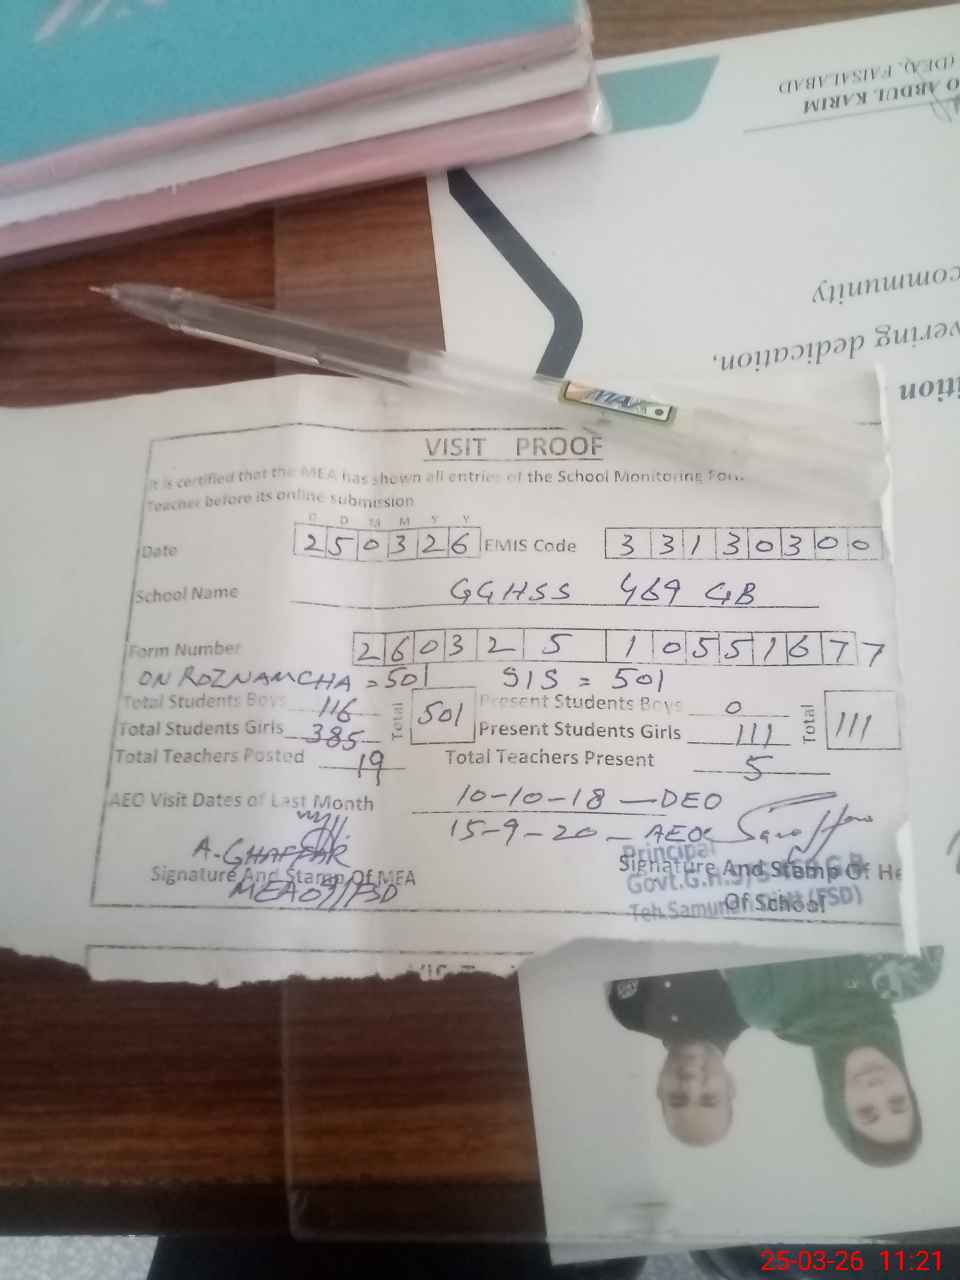 O ABDUL KARIM
(DEA), FAISALABAD
community
vering dedication,
ition
MAX
VISIT PROOF
It is certified that the MEA has shown all entries of the School Monitoring Form
Teacher before its online submission
D D M M Y Y
Date 2 5 0 3 2 6 EMIS Code 3 3 1 3 0 3 0 0
School Name GGHSS 469 GB
Form Number 2 6 0 3 2 5 1 0 5 5 1 6 7 7
ON ROZNAMCHA = 501 SIS = 501
Total Students Boys 116 Total 501 Present Students Boys 0 Total 111
Total Students Girls 385 Present Students Girls 111
Total Teachers Posted 19 Total Teachers Present 5
AEO Visit Dates of Last Month 10-10-18 — DEO
15-9-20 - AEO
A. GHAFFAR
Signature And Stamp Of MEA
MEA 09 FSD
Principal
Signature And Stamp Of He
Of School
25-03-26 11:21